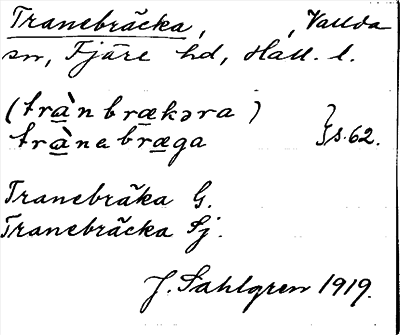 Tranebräcka, , Vallda
sn, Fjäre hd, Hall. l.
(trànbrækəra )
trànabræga } s. 62.
Tranebräka G.
Tranebräcka Sj.
J. Sahlgren 1919.